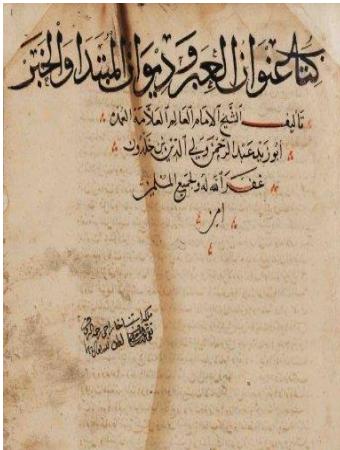 كتاب عنوان العبر وديوان المبتدا والخبر
تأليف الشيخ الامام العالم العلامة العمدة
أبو زيد عبد الرحمن ولي الدين بن خلدون
غفر الله له ولجميع المسلمين
امين